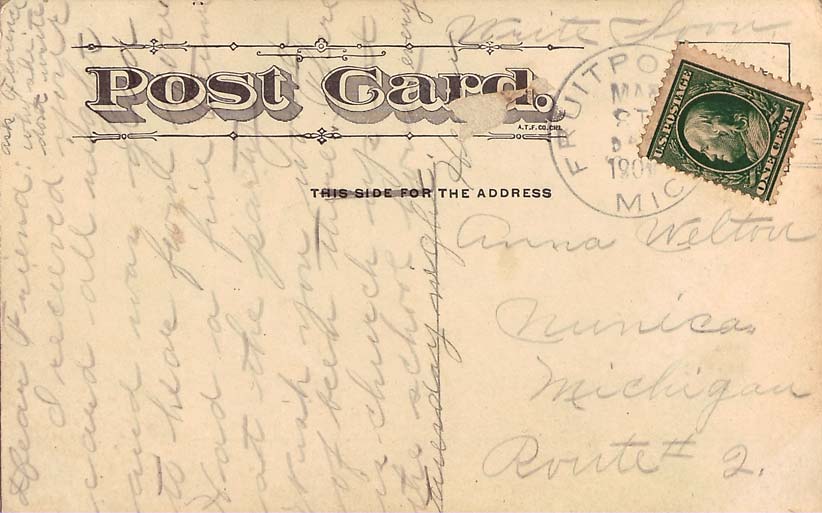 Post Card.
A.T.F. CO. CHI.
THIS SIDE FOR THE ADDRESS
Write Soon
FRUITPO
MAR
190
MIC
U.S. POSTAGE
ONE CENT
Anna Welton
Nunica
Michigan
Route # 2.
Dear Friend:
I received your
card all right
and was glad
to hear from you
Had a fine time
at the party
wish you might
of been there
church
the school house every
tuesday night
ask
why she
dont write